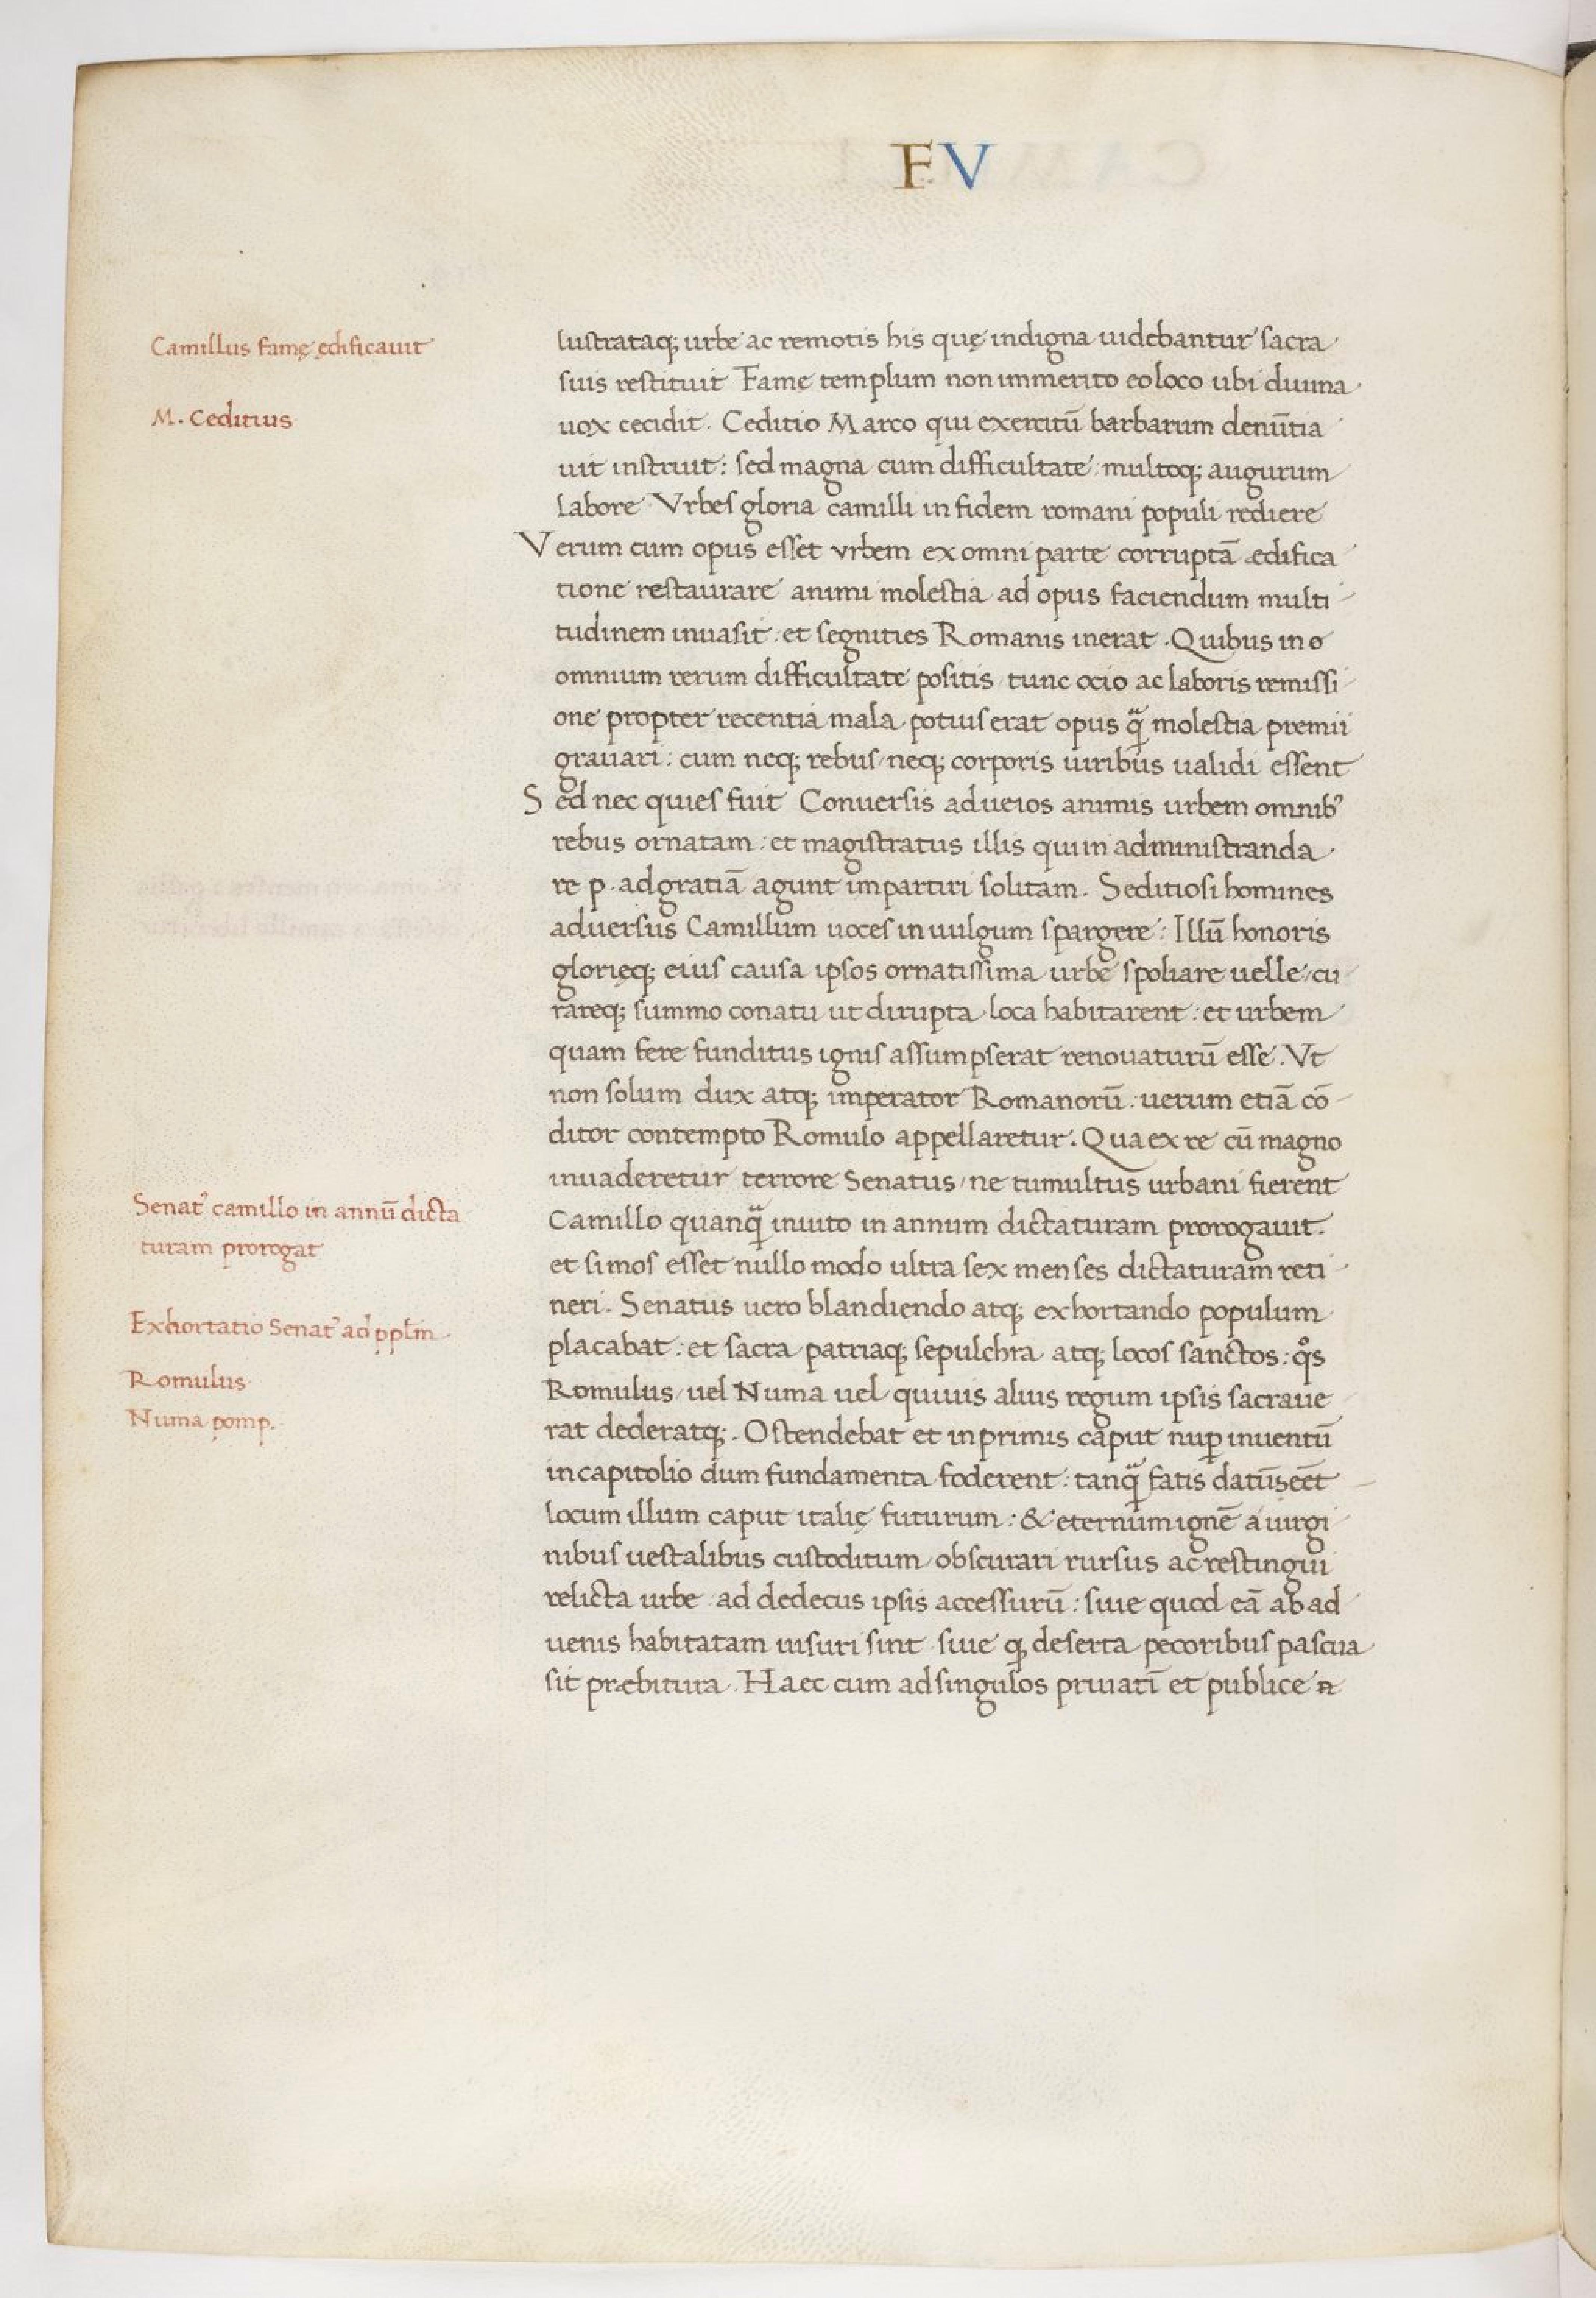 FV
Camillus famę ędificauit
M. Ceditius
lustrataq; urbe ac remotis his quę indigna uidebantur sacra
suis restituit Fame templum non immerito eo loco ubi diuina
uox cecidit. Ceditio Marco qui exercitū barbarum denūtia
uit instruit: sed magna cum difficultate: multoq; augurum
labore Vrbes gloria camilli in fidem romani populi rediere
Verum cum opus esset vrbem ex omni parte corruptā ædifica
tione restaurare animi molestia ad opus faciendum multi
tudinem inuasit: et segnities Romanis inerat. Quibus in o
omnium rerum difficultate positis tunc ocio ac laboris remissi
one propter recentia mala potius erat opus q̄ molestia premii
grauari: cum neq; rebus neq; corporis uiribus ualidi essent
Sed nec quies fuit Conuersis ad ueios animis urbem omnibꝰ
rebus ornatam: et magistratus illis qui in administranda
re p. ad gratiā agunt impartiri solitam. Seditiosi homines
aduersus Camillum uoces in uulgum spargere: Illū honoris
glorięq; eius causa ipsos ornatissima urbe spoliare uelle/cu
rareq; summo conatu ut dirupta loca habitarent: et urbem
quam fere funditus ignis assumpserat renouaturū esse. Vt
non solum dux atq; imperator Romanorū: uerum etiā cō
ditor contempto Romulo appellaretur. Qua ex re cū magno
inuaderetur terrore Senatus/ne tumultus urbani fierent
Camillo quanq̄ inuito in annum dictaturam prorogauit.
et si mos esset nullo modo ultra sex menses dictaturam reti
neri. Senatus uero blandiendo atq; exhortando populum
placabat: et sacra patriaq; sepulchra atq; locos sanctos: qͦs
Romulus/uel Numa uel quiuis alius regum ipsis sacraue
rat dederatq;. Ostendebat et in primis caput nuꝑ inuentū
in capitolio dum fundamenta foderent: tanq̄ fatis datū eēt
locum illum caput italię futurum: & eternum ignē a uirgi
nibus uestalibus custoditum/obscurari rursus ac restingui
relicta urbe ad dedecus ipsis accessurū: siue quod eā ab ad
uenis habitatam uisuri sint siue ꝙ deserta pecoribus pascua
sit præbitura. Haec cum ad singulos priuatī et publice n
Senatꝰ camillo in annū dicta
turam prorogat
Exhortatio Senatꝰ ad pplm̄
Romulus
Numa pomp.